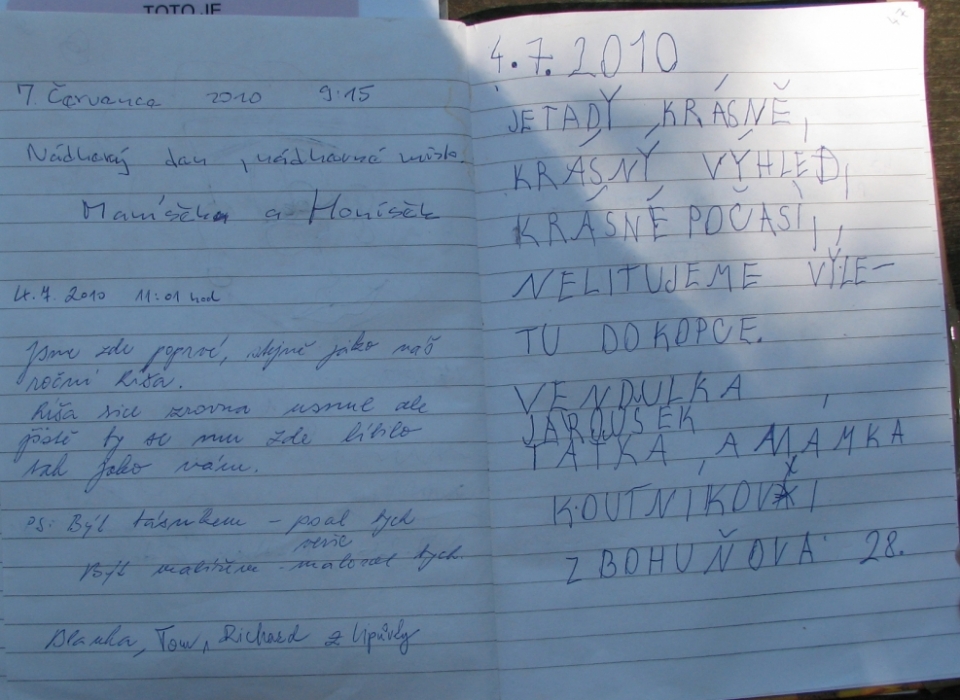 TOTO JE
7. Července 2010 9:15
Nádherný den, nádherné místo.
a Honísek
4.7. 2010 11:01 hod
Jsme zde poprvé, stejně jako náš
roční Ríša.
Ríša sice zrovna usnul ale
jistě by se mu zde líbilo
tak jako nám.
PS: Být básníkem – psal bych
verše
Být malířem – maloval bych.
Blanka, Tom, Richard z Lipůvky
4.7.2010
JE TADY KRÁSNĚ,
KRÁSNÝ VÝHLED,
KRÁSNÉ POČASÍ,
NELITUJEME VÝLE–
TU DO KOPCE.
VENDULKA
JAROUŠEK
TÁTKA, A MAMKA
KOUTNIKOVI
Z BOHUŇOVA 28.